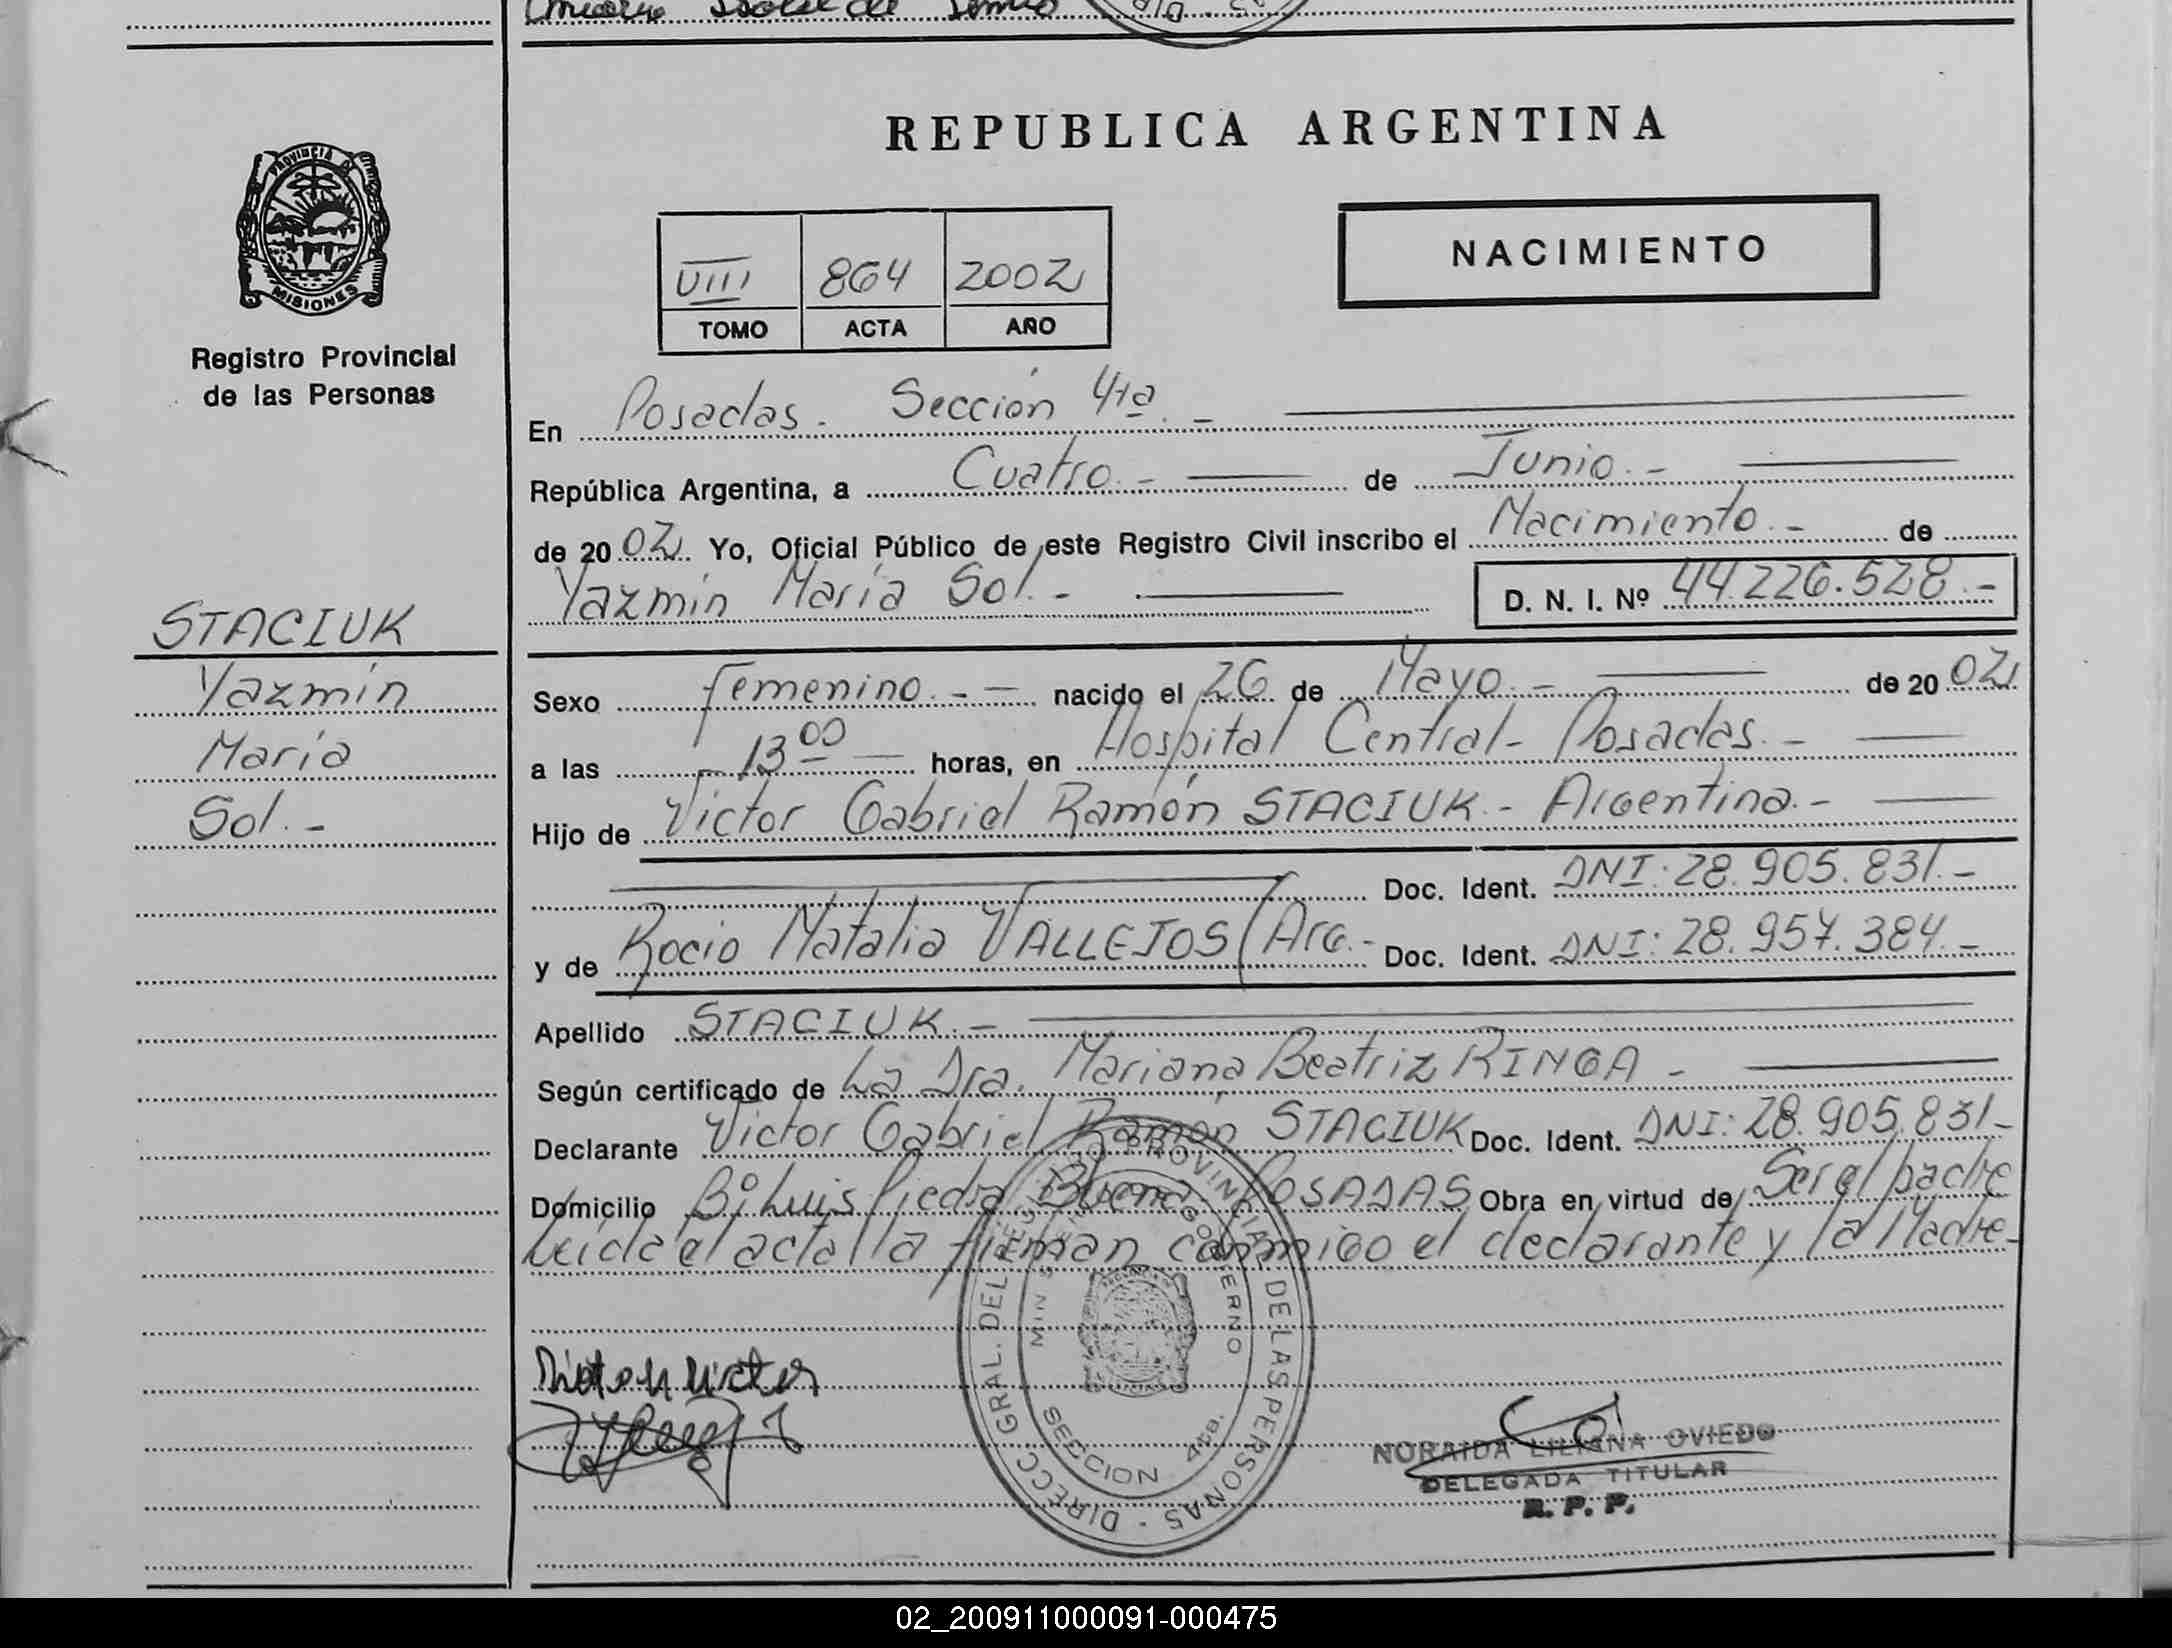 REPUBLICA ARGENTINA
PROVINCIA DE
MISIONES
Registro Provincial
de las Personas
NACIMIENTO
VIII 864 2002
TOMO ACTA AÑO
En Posadas. Sección 4ta. -
República Argentina, a Cuatro. - de Junio. -
de 2002 Yo, Oficial Público de este Registro Civil inscribo el Nacimiento. - de
Yazmín María Sol. - D. N. I. Nº 44.226.528.-
STACIUK
Yazmín
María
Sol. -
Sexo femenino. - - nacido el 26 de Mayo. - de 2002
a las - 13 00 - horas, en Hospital Central - Posadas. -
Hijo de Víctor Gabriel Ramón STACIUK. - Argentina. -
Doc. Ident. DNI: 28.905.831. -
y de Rocio Natalia VALLEJOS / Arg. - Doc. Ident. DNI: 28.957.384. -
Apellido STACIUK. -
Según certificado de La Dra. Mariana Beatriz RINGA -
Declarante Víctor Gabriel Ramón STACIUK Doc. Ident. DNI: 28.905.831 -
Domicilio Bº Luis Piedra Buena POSADAS Obra en virtud de Ser el padre
Leída el acta la firman conmigo el declarante y la Madre -
DIRECC GRAL. DEL REGISTRO PROVINCIAL DE LAS PERSONAS -
MIN GOBIERNO
SECCION 4ta.
NORAIDA LILIANA OVIEDO
DELEGADA TITULAR
R. P. P.
02_200911000091-000475